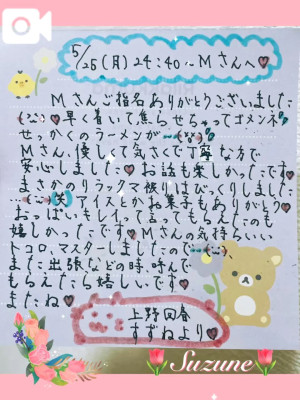 5/25(月)24:40〜Mさんへ
Mさんご指名ありがとうございました
早く着いて焦らせちゃってゴメンネ
せっかくのラーメンが…
Mさん、優しくて気さくで丁寧な方で
安心しました お話も楽しかったです
まさかのリラックマ被りはびっくりしました
(笑)アイスとかお菓子もありがとう
おっぱいキレイって言ってもらえたのも
嬉しかったです Mさんの気持ちいい
トコロ、マスターしましたので…
また出張などの時、呼んで
もらえたら嬉しいです
またね
上野回春
すずねより
Suzune